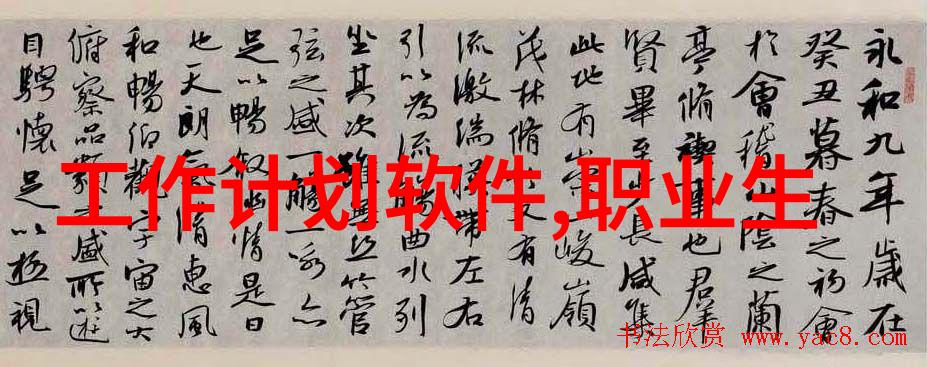 永和九年歲在
癸丑暮春之初會
於會稽山陰之蘭
亭脩禊事也羣
賢畢至少長咸集
此地有崇峻嶺
茂林脩竹又有清
流激湍暎帶左右
引以為流觴曲水列
坐其次雖無絲竹管
弦之盛一觴一詠亦
足以暢敘幽情是日
也天朗氣清惠風
和暢仰觀宇宙之大
俯察品類之盛所以遊
目騁懷足以極視
工作计划软件,职业生
书法欣赏 www.yac8.com